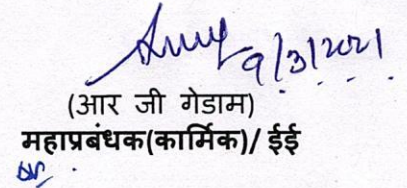 9/3/2021
(आर जी गेडाम)
महाप्रबंधक(कार्मिक)/ ईई